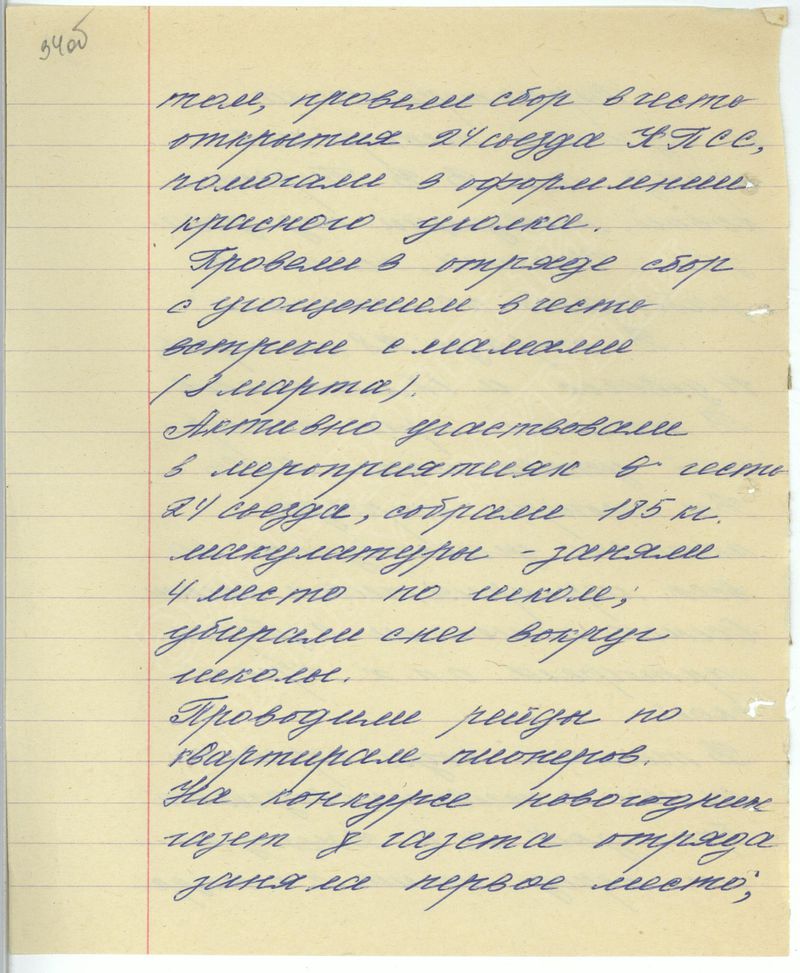 34об
том, провели сбор в честь
открытия 24 съезда КПСС,
помогали в оформлении
красного уголка.
Провели в отряде сбор
с угощением в честь
встречи с мамами
(8 марта).
Активно участвовали
в мероприятиях в честь
24 съезда, собрали 185 кг.
макулатуры - заняли
4 место по школе;
убирали снег вокруг
школы.
Проводили рейды по
квартирам пионеров.
На конкурсе новогодних
газет газета отряда
заняла первое место;